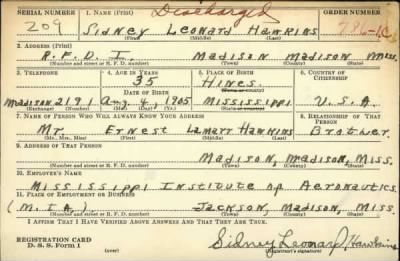 SERIAL NUMBER 1. NAME (Print) Discharged ORDER NUMBER
209 Sidney Leonard Hawkins 786-1C
(First) (Middle) (Last)
2. ADDRESS (Print)
R.F.D. 1. Madison Madison Miss.
(Number and street or R. F. D. number) (Town) (County) (State)
3. TELEPHONE 4. AGE IN YEARS 5. PLACE OF BIRTH 6. COUNTRY OF CITIZENSHIP
35 Hines
DATE OF BIRTH (Town or county)
Madison 2191 Aug. 4, 1905 Mississippi U.S.A.
(Exchange) (Number) (Mo.) (Day) (Yr.) (State or country)
7. NAME OF PERSON WHO WILL ALWAYS KNOW YOUR ADDRESS 8. RELATIONSHIP OF THAT PERSON
Mr. Ernest Lamarr Hawkins Brother
(Mr., Mrs., Miss) (First) (Middle) (Last)
9. ADDRESS OF THAT PERSON
Madison, Madison, Miss.
(Number and street or R. F. D. number) (Town) (County) (State)
10. EMPLOYER'S NAME
Mississippi Institute of Aeronautics
11. PLACE OF EMPLOYMENT OR BUSINESS
(M.I.A.) Jackson, Madison, Miss.
(Number and street or R. F. D. number) (Town) (County) (State)
I AFFIRM THAT I HAVE VERIFIED ABOVE ANSWERS AND THAT THEY ARE TRUE.
REGISTRATION CARD
D. S. S. Form 1 Sidney Leonard Hawkins
(Registrant's signature)